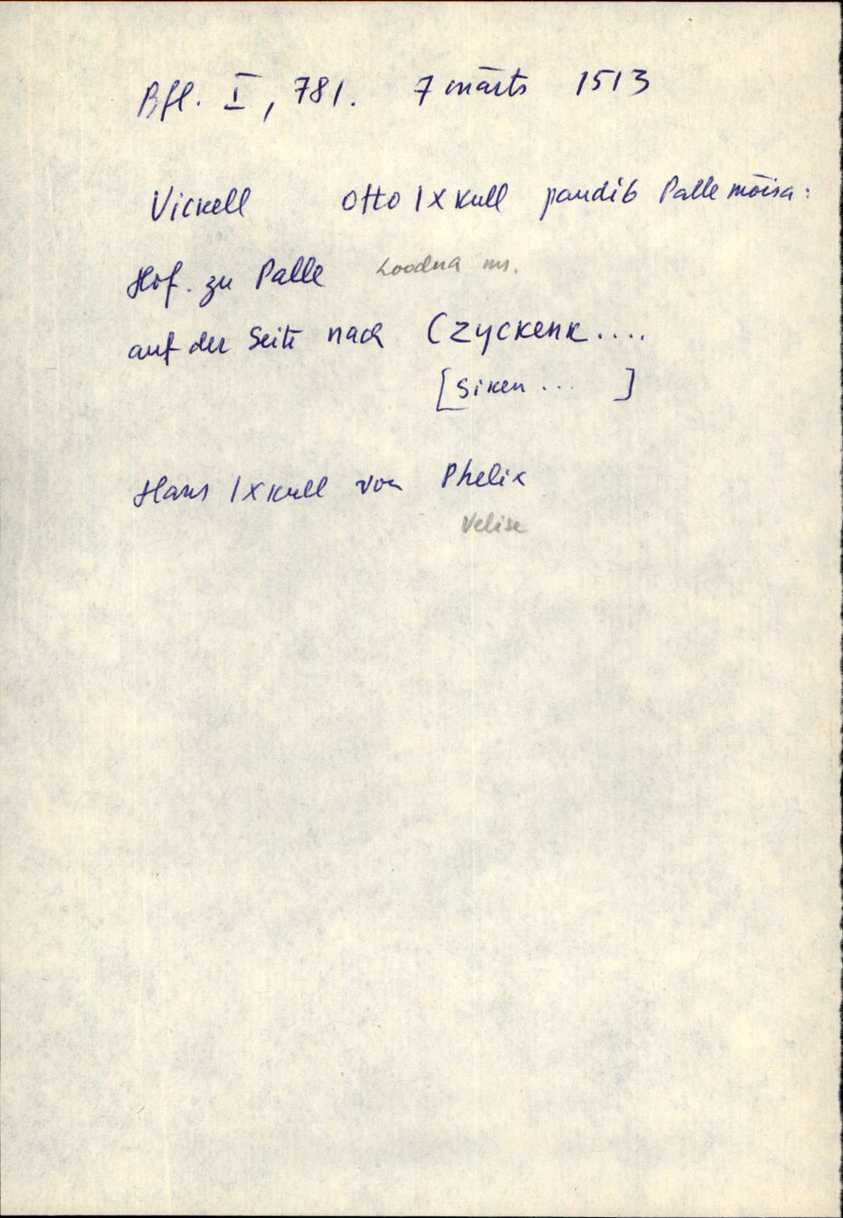 Bfl. I, 781. 7 märts 1513
Vickell Otto Ixkull pandib Palle mõisa:
Hof. zu Palle Loodna ms.
auf der Seite nach Czyckenk....
[Siken ... ]
Hans Ixkull von Phelix
Velise